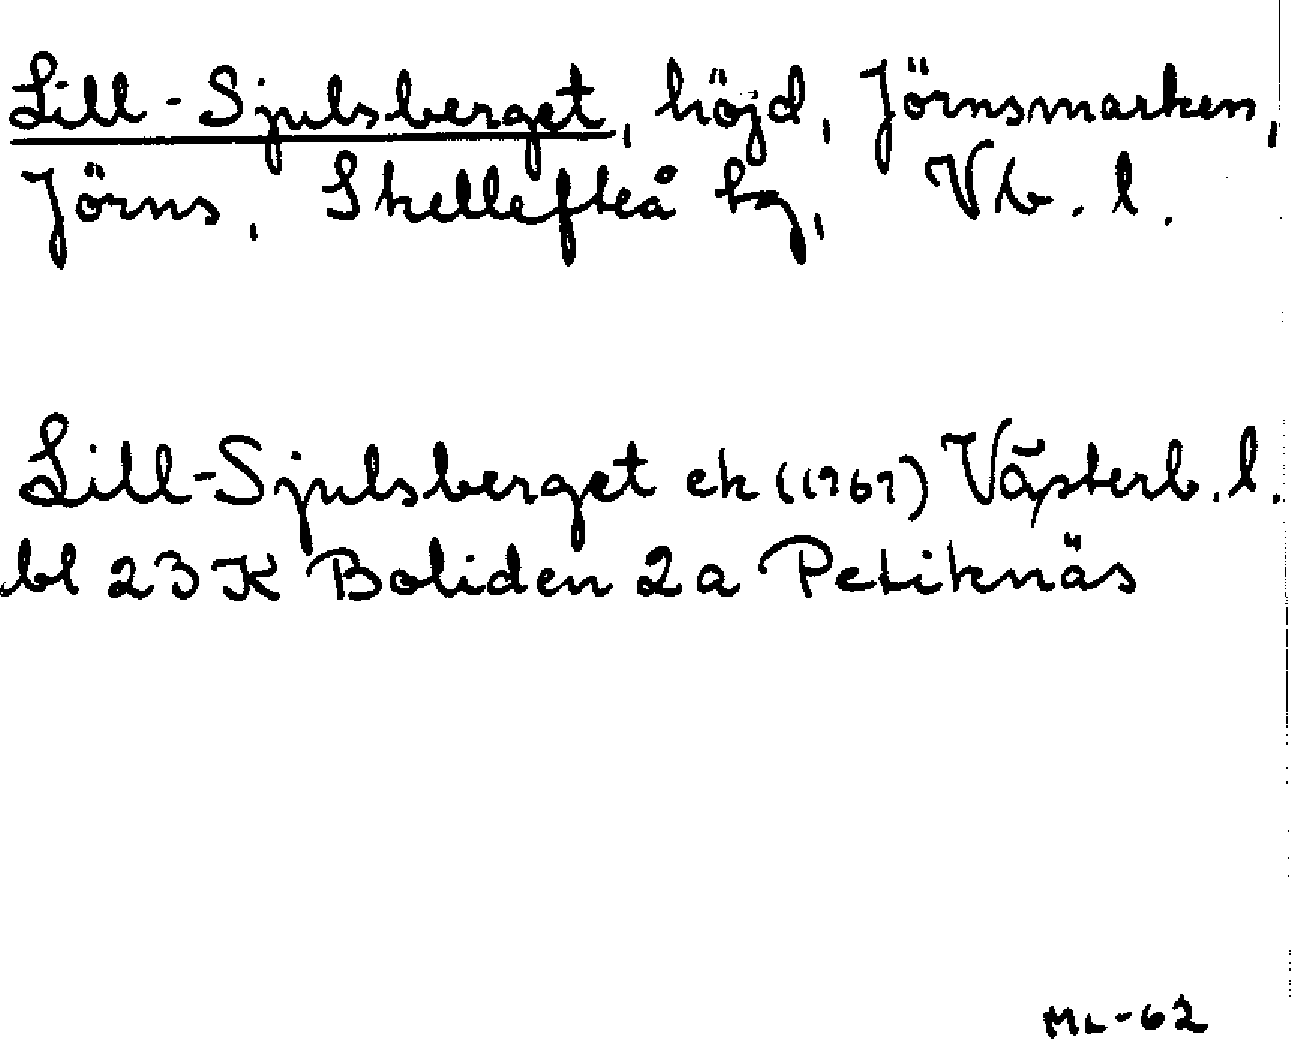 Lill-Sjulsberget, höjd, Jörnsmarken,
Jörns, Skellefteå tg, Vb. l.
Lill-Sjulsberget ek (1961) Västerb. l.
bl 23 K Boliden 2a Petiknäs
ML-62